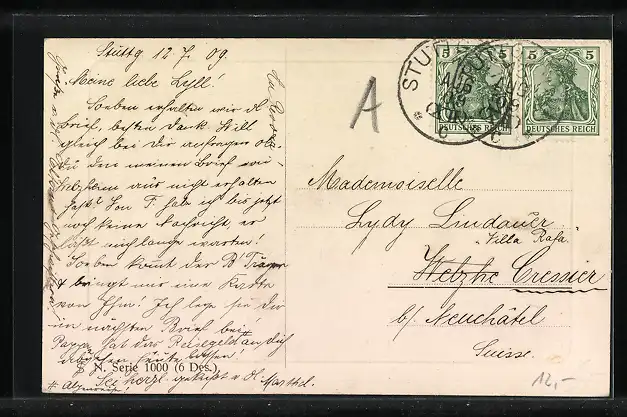 Stuttg 12.7.09.
Meine liebe Lyll!
Soeben erhalten wir d.
Brief, besten Dank. Will
gleich bei dir anfragen ob
du den meinen Brief von
aus nicht erhalten
hast? Von F. hab ich bis jetzt
noch keine Nachricht, er
läßt mich lange warten!
Soeben kommt der B Träger
& bringt mir eine Karte
von Ihm! Ich lege sie dir
im nächsten Brief bei
Papa hat das Reisegeld an dich
heute
N. Serie 1000 (6 Des.)
Sei herzl. geküßt v. d. Marthel.
A
STUTTG
5 5
DEUTSCHES REICH
5 5
DEUTSCHES REICH
Mademoiselle
Lydy Lindauer
"Villa Rafa"
Cressier
b/ Neuchâtel
Suisse.
12,-